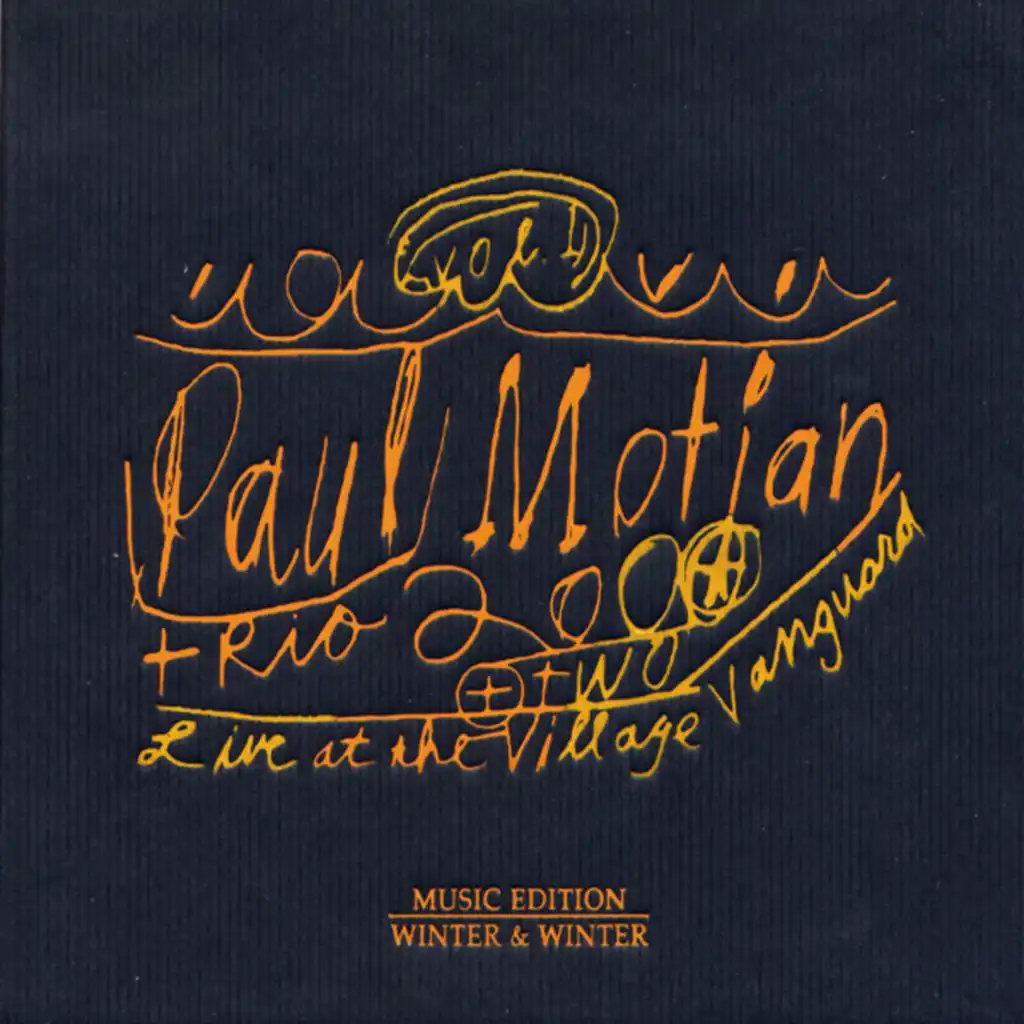 Vol. I
Paul Motian
trio 2000
+ two
Live at the Village Vanguard
MUSIC EDITION
WINTER & WINTER